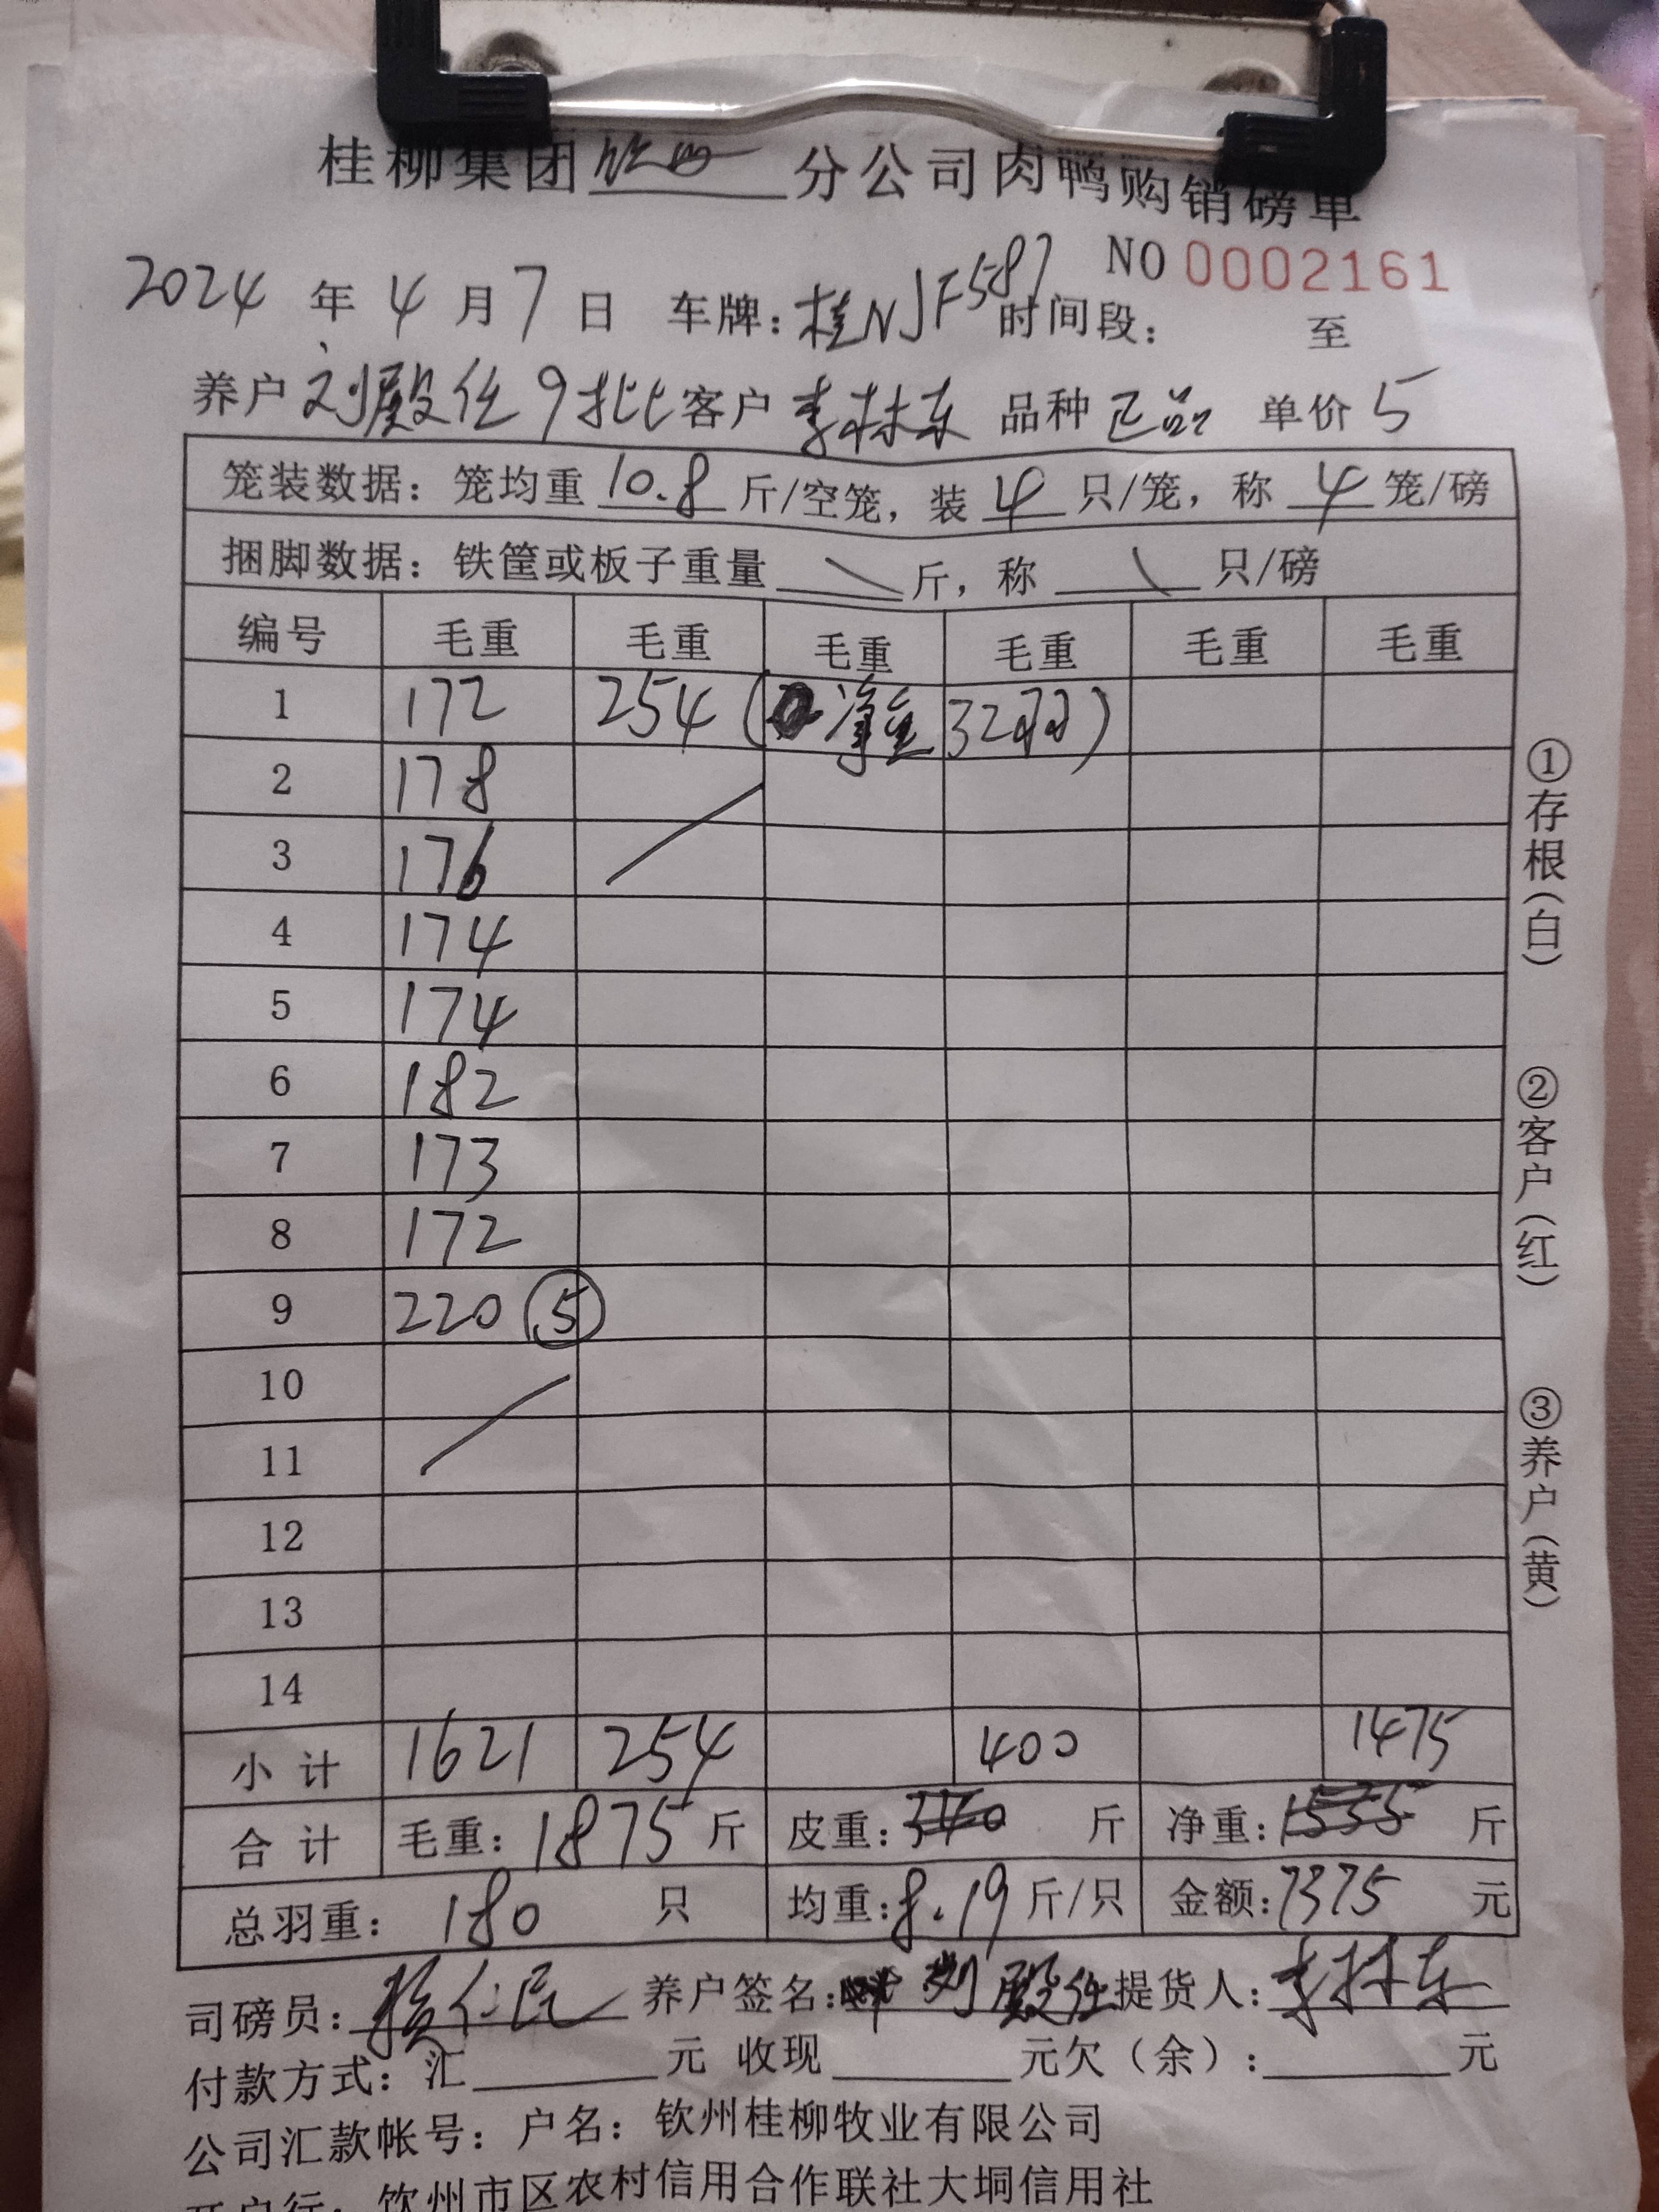 桂柳集团 分公司肉鸭购销磅单
NO 0002161
2024 年 4 月 7 日 车牌：桂NJF587 时间段： 至
养户 刘殿任 9批 客户 李林东 品种 正品 单价 5
笼装数据：笼均重 10.8 斤/空笼，装 4 只/笼，称 4 笼/磅
捆脚数据：铁筐或板子重量 斤，称 只/磅
编号 毛重 毛重 毛重 毛重 毛重 毛重
1 172 254 (净重 32羽)
2 178
3 176
4 174
5 174
6 182
7 173
8 172
9 220 ⑤
10
11
12
13
14
小计 1621 254 400 1475
合计 毛重：1875 斤 皮重：340 斤 净重：1535 斤
总羽重：180 只 均重：8.19 斤/只 金额：7375 元
司磅员： 养户签名：刘殿任 提货人：李林东
付款方式：汇 元 收现 元欠（余）： 元
公司汇款帐号：户名：钦州桂柳牧业有限公司
开户行：钦州市区农村信用合作联社大垌信用社
①存根（白）
②客户（红）
③养户（黄）